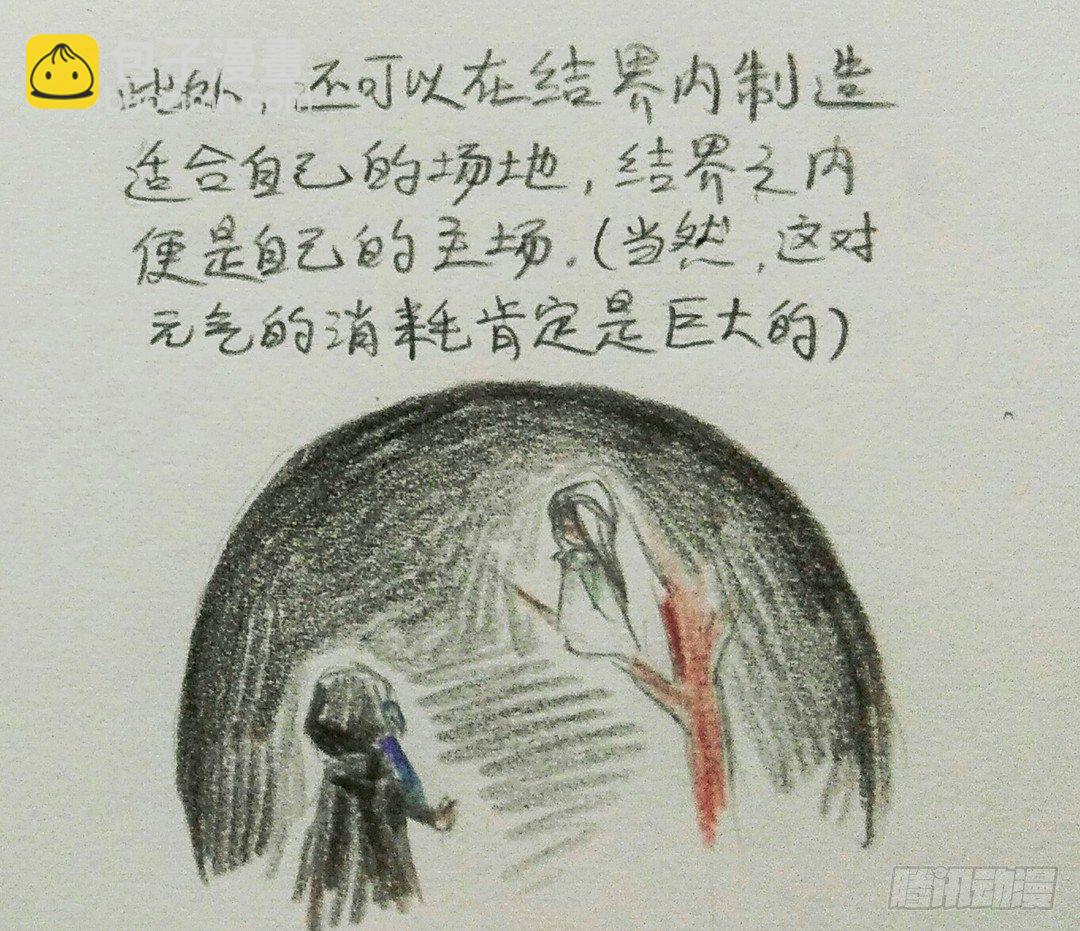 包子漫畫
baozimh.com
此外，还可以在结界内制造
适合自己的场地，结界之内
便是自己的主场。（当然，这对
元气的消耗肯定是巨大的）
腾讯动漫